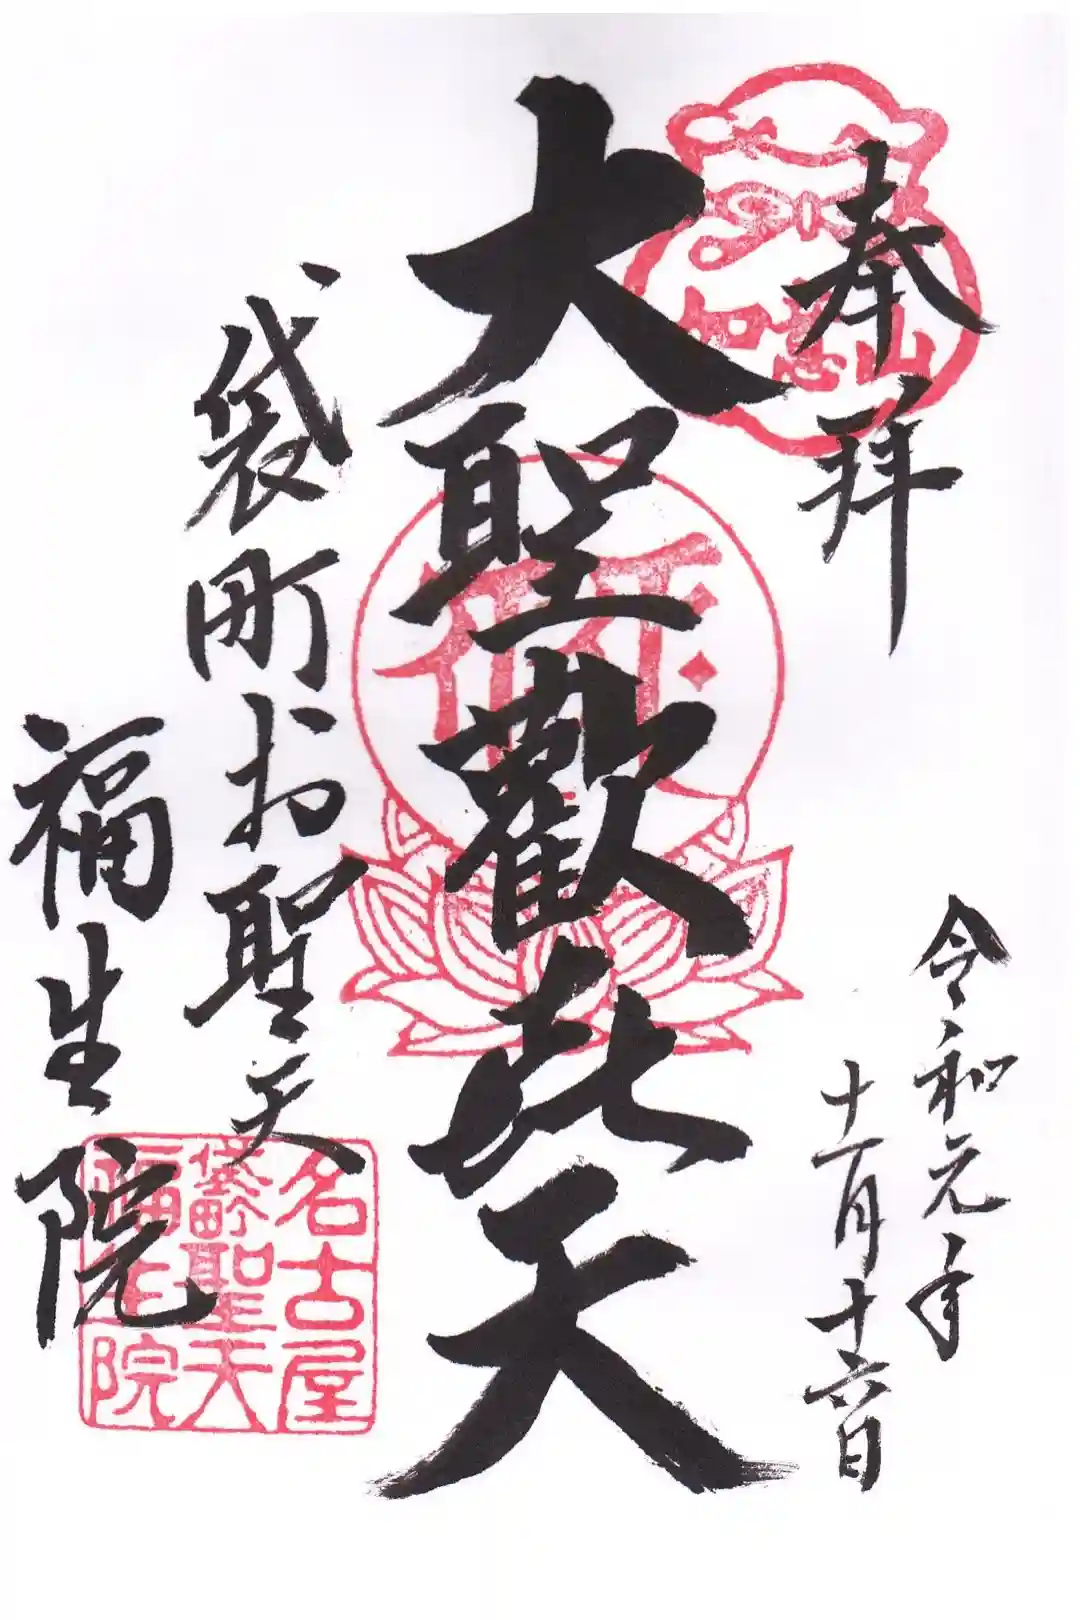 奉拝
如意山
令和元年
十一月十六日
大聖歓喜天
袋町お聖天
福生院
名古屋
袋町聖天
福生院